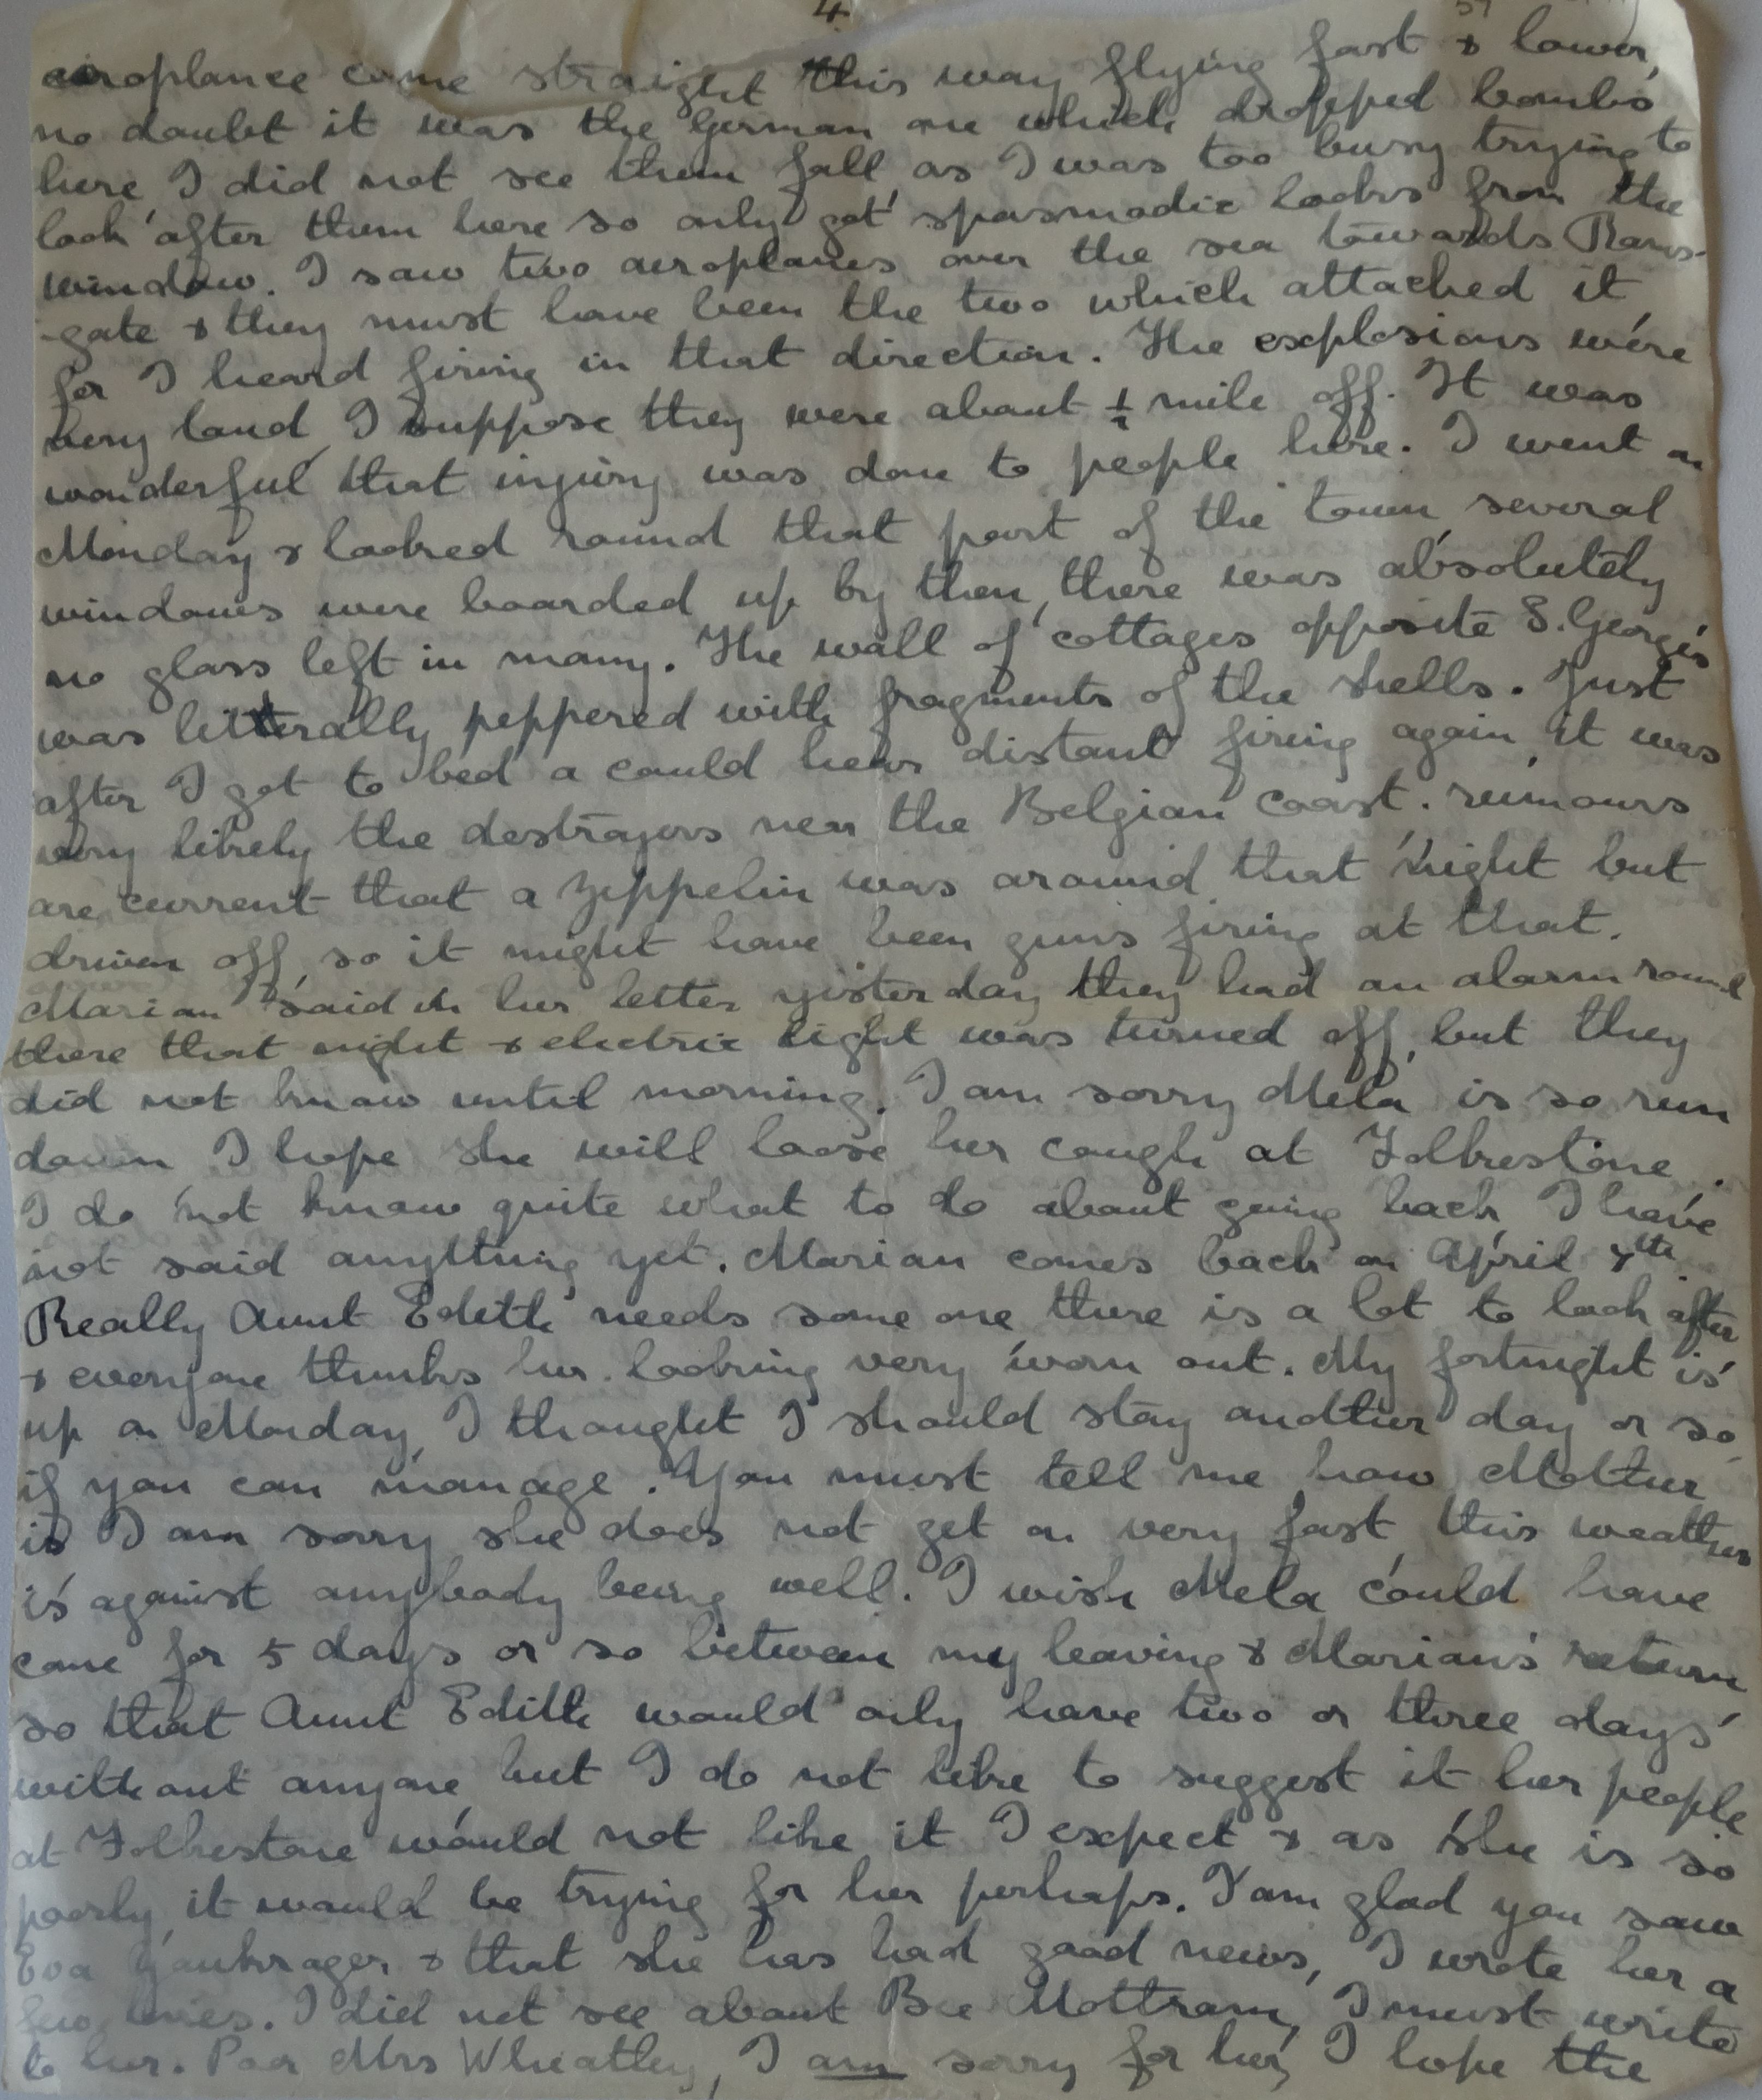 4
aeroplanee come straight this way flying fast & lower,
no doubt it was the German one which dropped bombs
here, I did not see them fall, as I was too busy trying to
look after them here so only got spasmodic looks from the
window. I saw two aeroplanes over the sea towards Rams-
-gate & they must have been the two which attacked it,
for I heard firing in that direction. The explosions were
very loud, I suppose they were about ½ mile off. It was
wonderful that injury was done to people here. I went on
Monday & looked round that part of the town, several
windows were boarded up by then, there was absolutely
no glass left in many. The wall of cottages opposite S. George's
was litterally peppered with fragments of the shells. Just
after I got to bed a could hear distant firing again, it was
very likely the destroyers near the Belgian coast. rumours
are current that a Zeppelin was around that night but
driven off, so it might have been guns firing at that.
Marian said in her letter yisterday they had an alarm round
there that night & electric light was turned off, but they
did not know until morning. I am sorry Mela is so run
down I hope she will loose her cough at Folkestone.
I do not know quite what to do about going back, I have
not said anything yet. Marian comes back on April th
Really Aunt Edith needs some one there is a lot to look after
& everyone thinks her looking very worn out. My fortnight is
up on Monday, I thought I should stay another day or so,
if you can manage. You must tell me how Mother
is I am sorry she does not get on very fast, this weather
is against anybody being well. I wish Mela could have
come for 5 days or so between my leaving & Marian's return
so that Aunt Edith would only have two or three days
without anyone, but I do not like to suggest it her people
at Folkestone would not like it I expect & as she is so
poorly it would be trying for her perhaps. I am glad you saw
Eva & that she has had good news, I wrote her a
few lines. I did not see about Bee Mottram, I must write
to her. Poor Mrs Wheatley, I am sorry for her, I hope the